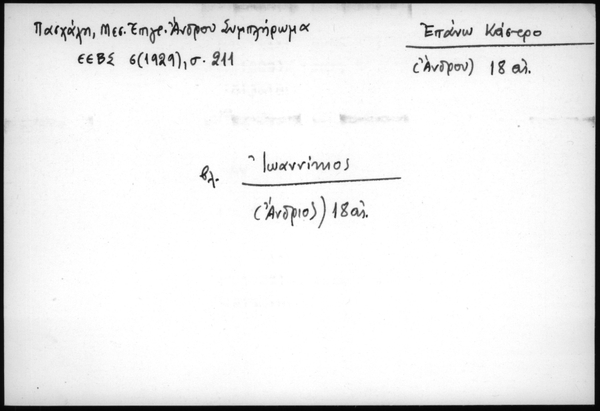 Πασχάλη, Μεσ. Ἐπιγρ. Ἄνδρου Συμπλήρωμα
ΕΕΒΣ 6(1929), σ. 211
Ἐπάνω Κάστρο
(Ἄνδρου) 18 αἰ.
βλ. Ἰωαννίκιος
(Ἄνδριος) 18 αἰ.